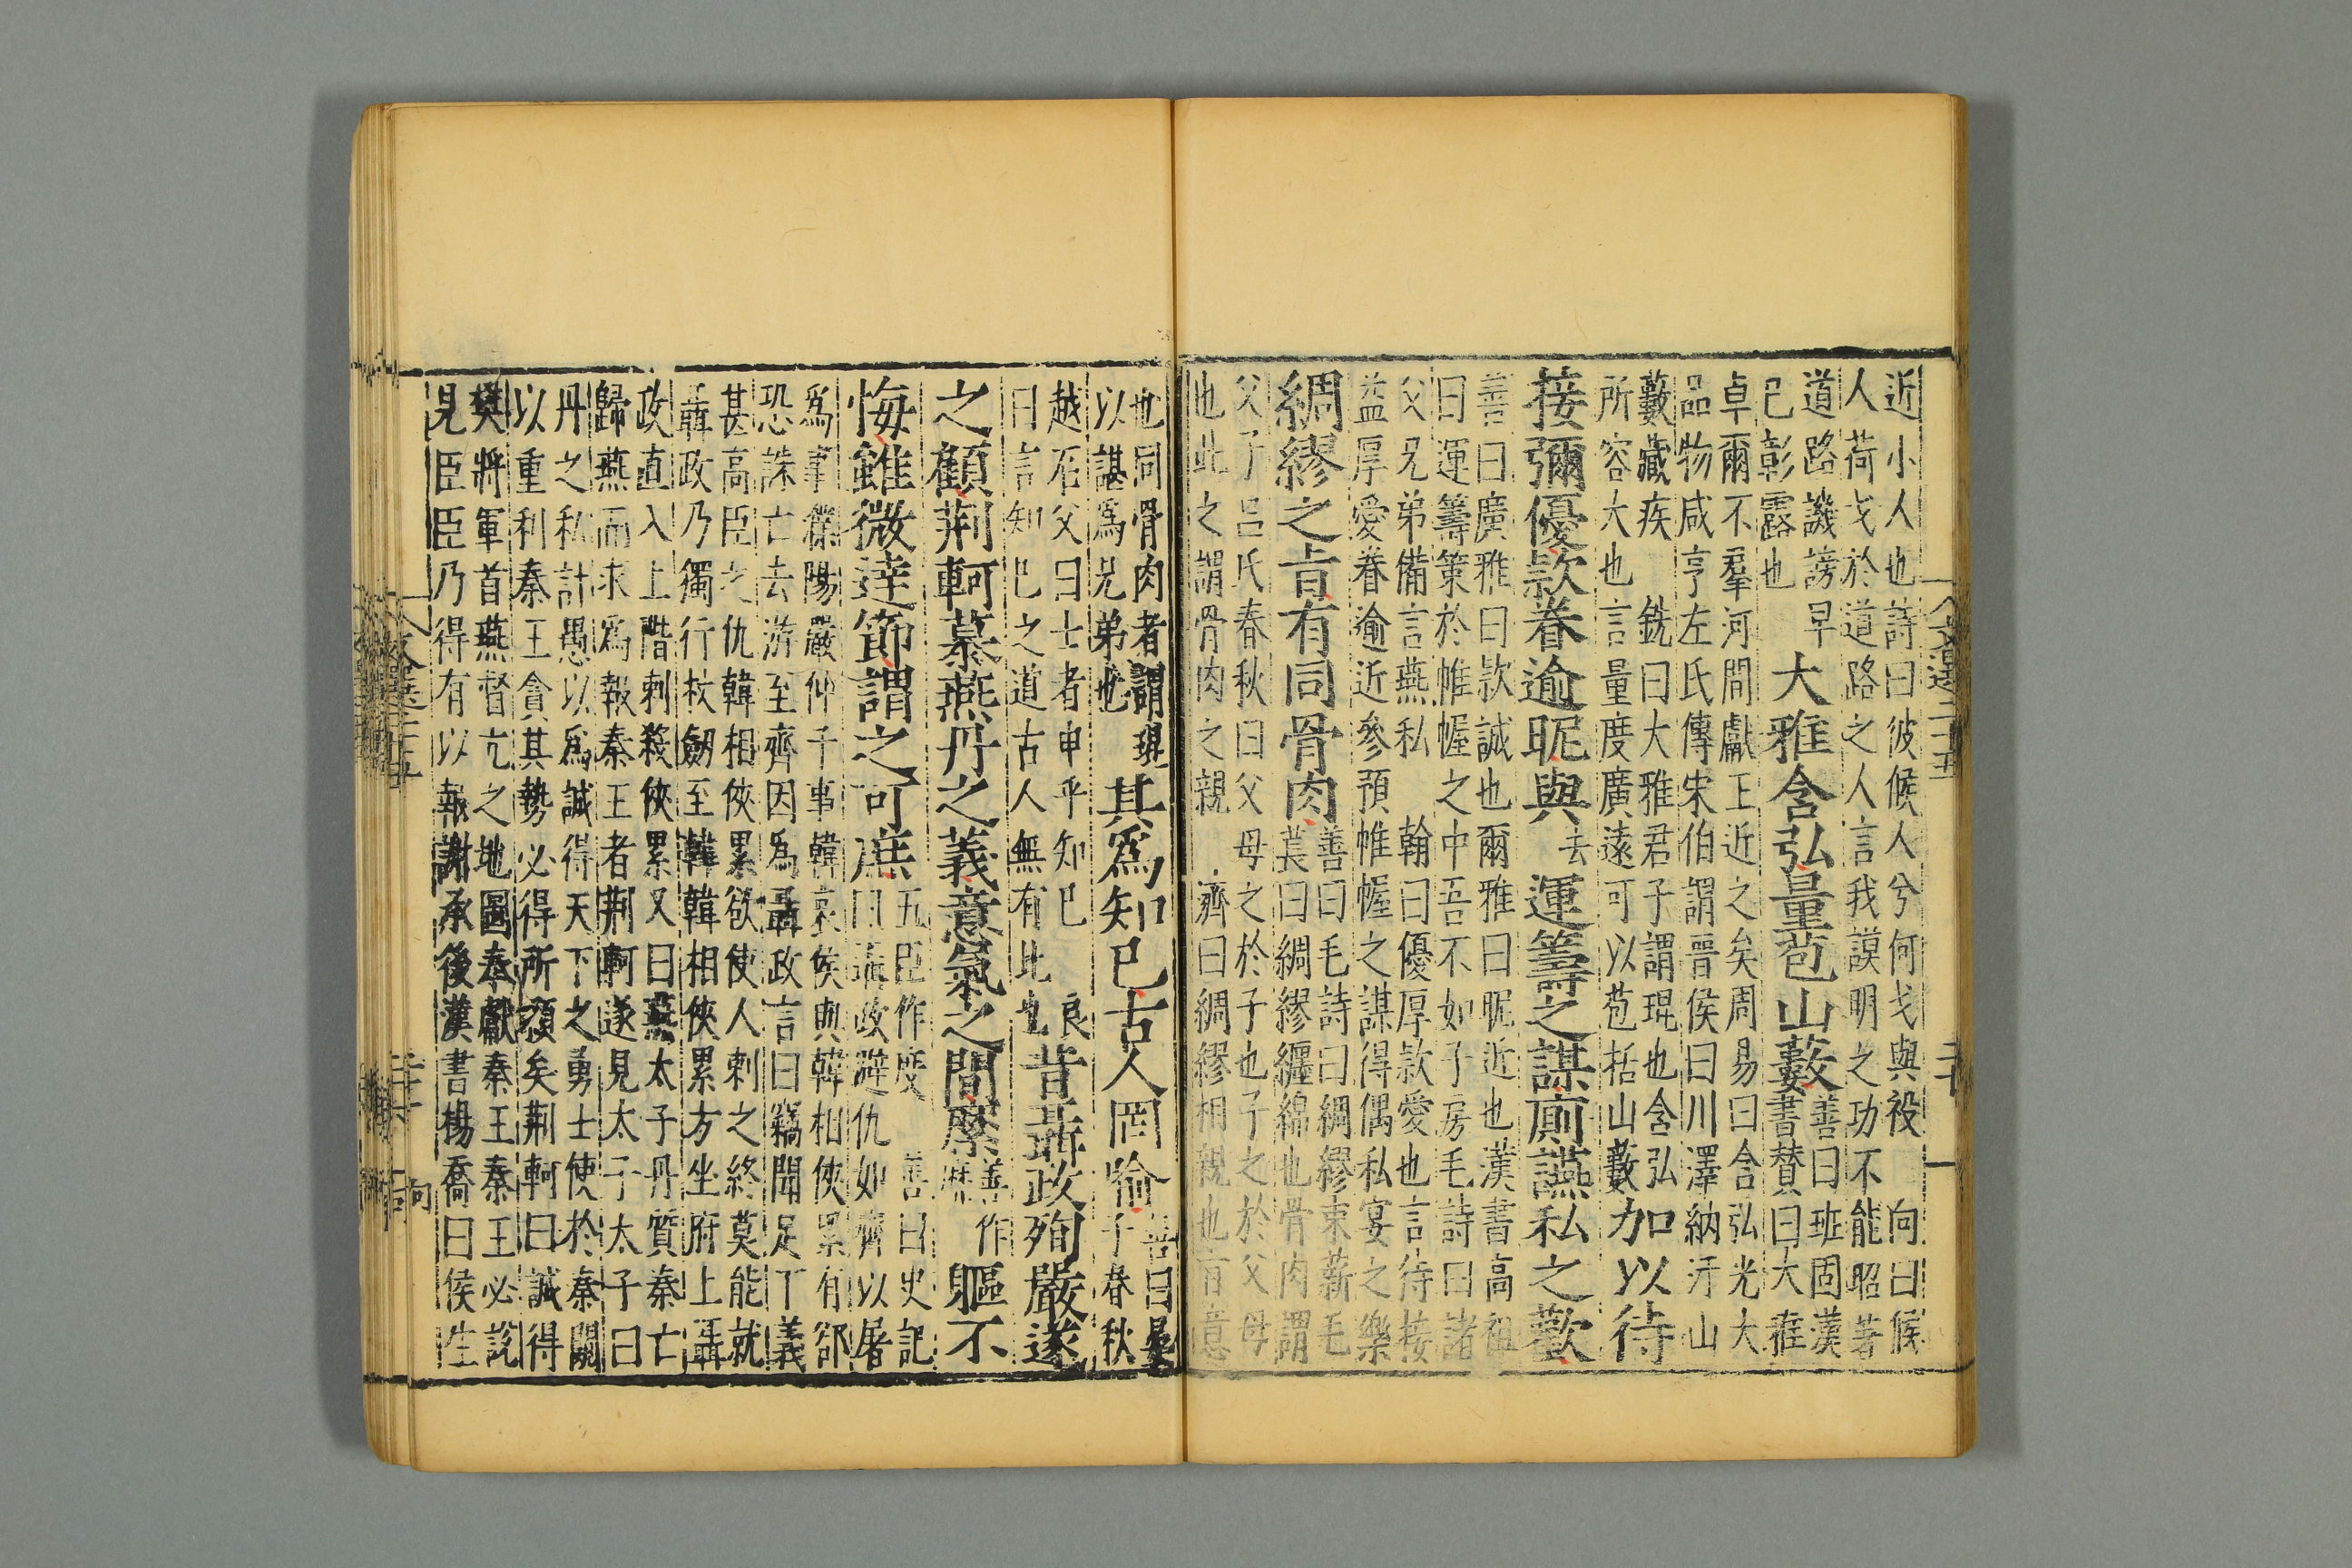 近小人也詩曰彼候人兮何戈與祋 向曰候
人荷戈於道路之人言我謨明之功不能昭著
道路譏謗早
已彰露也
大雅含弘量苞山藪
善曰班固漢
書賛曰大雅
卓爾不羣河間獻王近之矣周易曰含弘光大
品物咸亨左氏傳宋伯謂晉侯曰川澤納汙山
藪藏疾 銑曰大雅君子謂琨也含弘
所容大也言量度廣遠可以苞括山藪
加以待
接彌優款眷逾昵與
去
運籌之謀廁讌私之歡
善曰廣雅曰款誠也爾雅曰昵近也漢書高祖
曰運籌策於帷幄之中吾不如子房毛詩曰諸
父兄弟備言燕私 翰曰優厚款愛也言待接
益厚愛眷逾近參預帷幄之謀得偶私宴之樂
綢繆之旨有同骨肉
善曰毛詩曰綢繆束薪毛
萇曰綢繆纏綿也骨肉謂
父子呂氏春秋曰父母之於子也子之於父母
也此之謂骨肉之親 濟曰綢繆相親也有意
也同骨肉者謂琨
以諶爲兄弟也
其爲知已古人罔喻
善曰晏
子春秋
越石父曰士者申乎知已 良
曰言知已之道古人無有比也
昔聶政殉嚴遂
之顧荊軻慕燕丹之義意氣之間糜
善作
軀不
悔雖微達節謂之可庶
五臣作度 善曰史記
曰聶政避仇如齊以屠
爲事濮陽嚴仲子事韓哀侯與韓相俠累有郤
恐誅亡去游至齊因爲聶政言曰竊聞足下義
甚高臣之仇韓相俠累欲使人刺之終莫能就
聶政乃獨行杖劒至韓韓相俠累方坐府上聶
政直入上階刺殺俠累又曰燕太子丹質秦亡
歸燕而求爲報秦王者荊軻遂見太子太子曰
丹之私計愚以爲誠得天下之勇士使於秦闚
以重利秦王貪其勢必得所願矣荊軻曰誠得
樊將軍首燕督亢之地圖奉獻秦王秦王必說
見臣臣乃得有以報謝承後漢書楊喬曰侯生